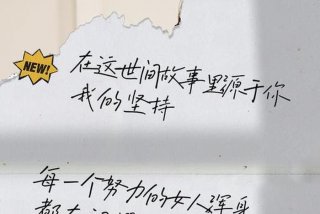 NEW!
在这世间故事里源于你
我的坚持
每一个努力的女人浑身
都